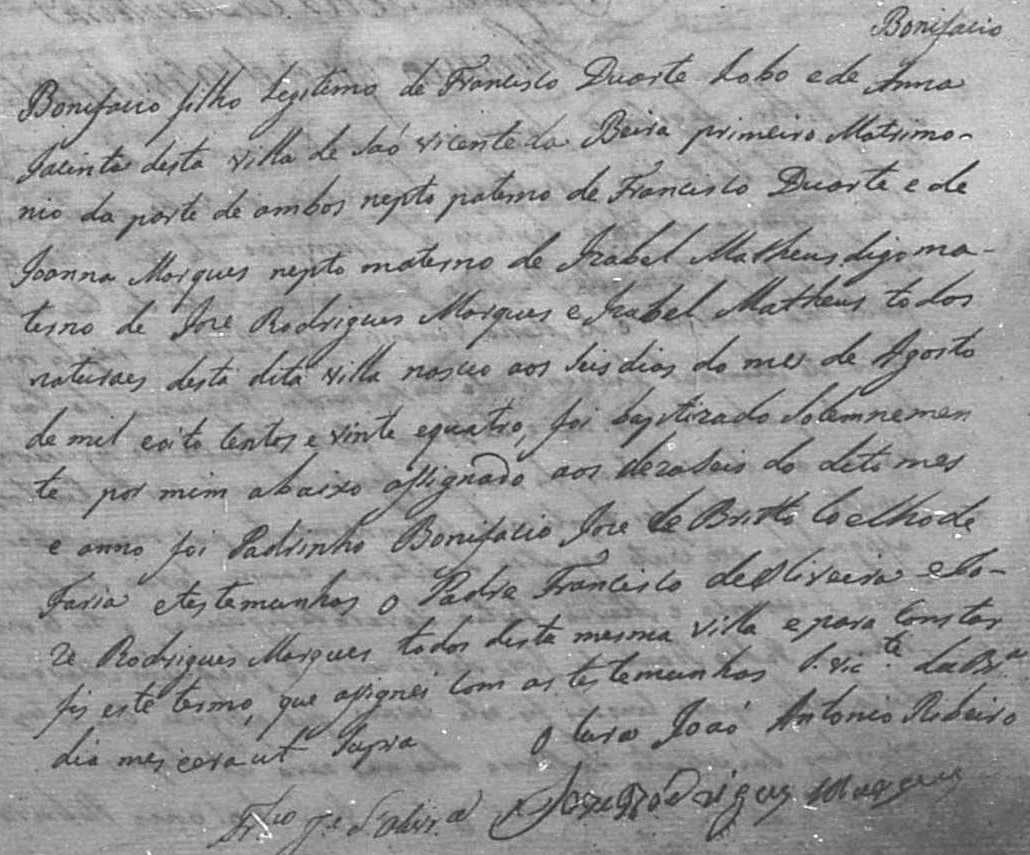 Bonifacio
Bonifacio filho legitemo de Francisco Duarte Lobo e de Anna
Jacinta desta villa de Saó Vicente da Beira primeiro Matrimo-
nio da parte de ambos nepto paterno de Francisco Duarte e de
Joanna Marques nepto materno de Izabel Matheus digo ma-
terno de Jozé Rodrigues Marques e Izabel Matheus todos
naturaes desta dita villa nasceo aos seis dias do mes de Agosto
de mil e oito centos e vinte e quatro, foi baptizado Solemnemen
te por mim abaixo assignado aos dezaseis do dito mes
e anno foi Padrinho Bonifacio Joze de Britto Coelho de
Faria e testemunhas o Padre Francisco de Oliveira e Jo-
ze Rodrigues Marques todos desta mesma villa e para constar
fis este termo, que assignei com as testemunhas S. Vic.te da Br.a
dia mes e era ut supra
O Cura Joaó Antonio Ribeiro
Joze Rodrigues Marques